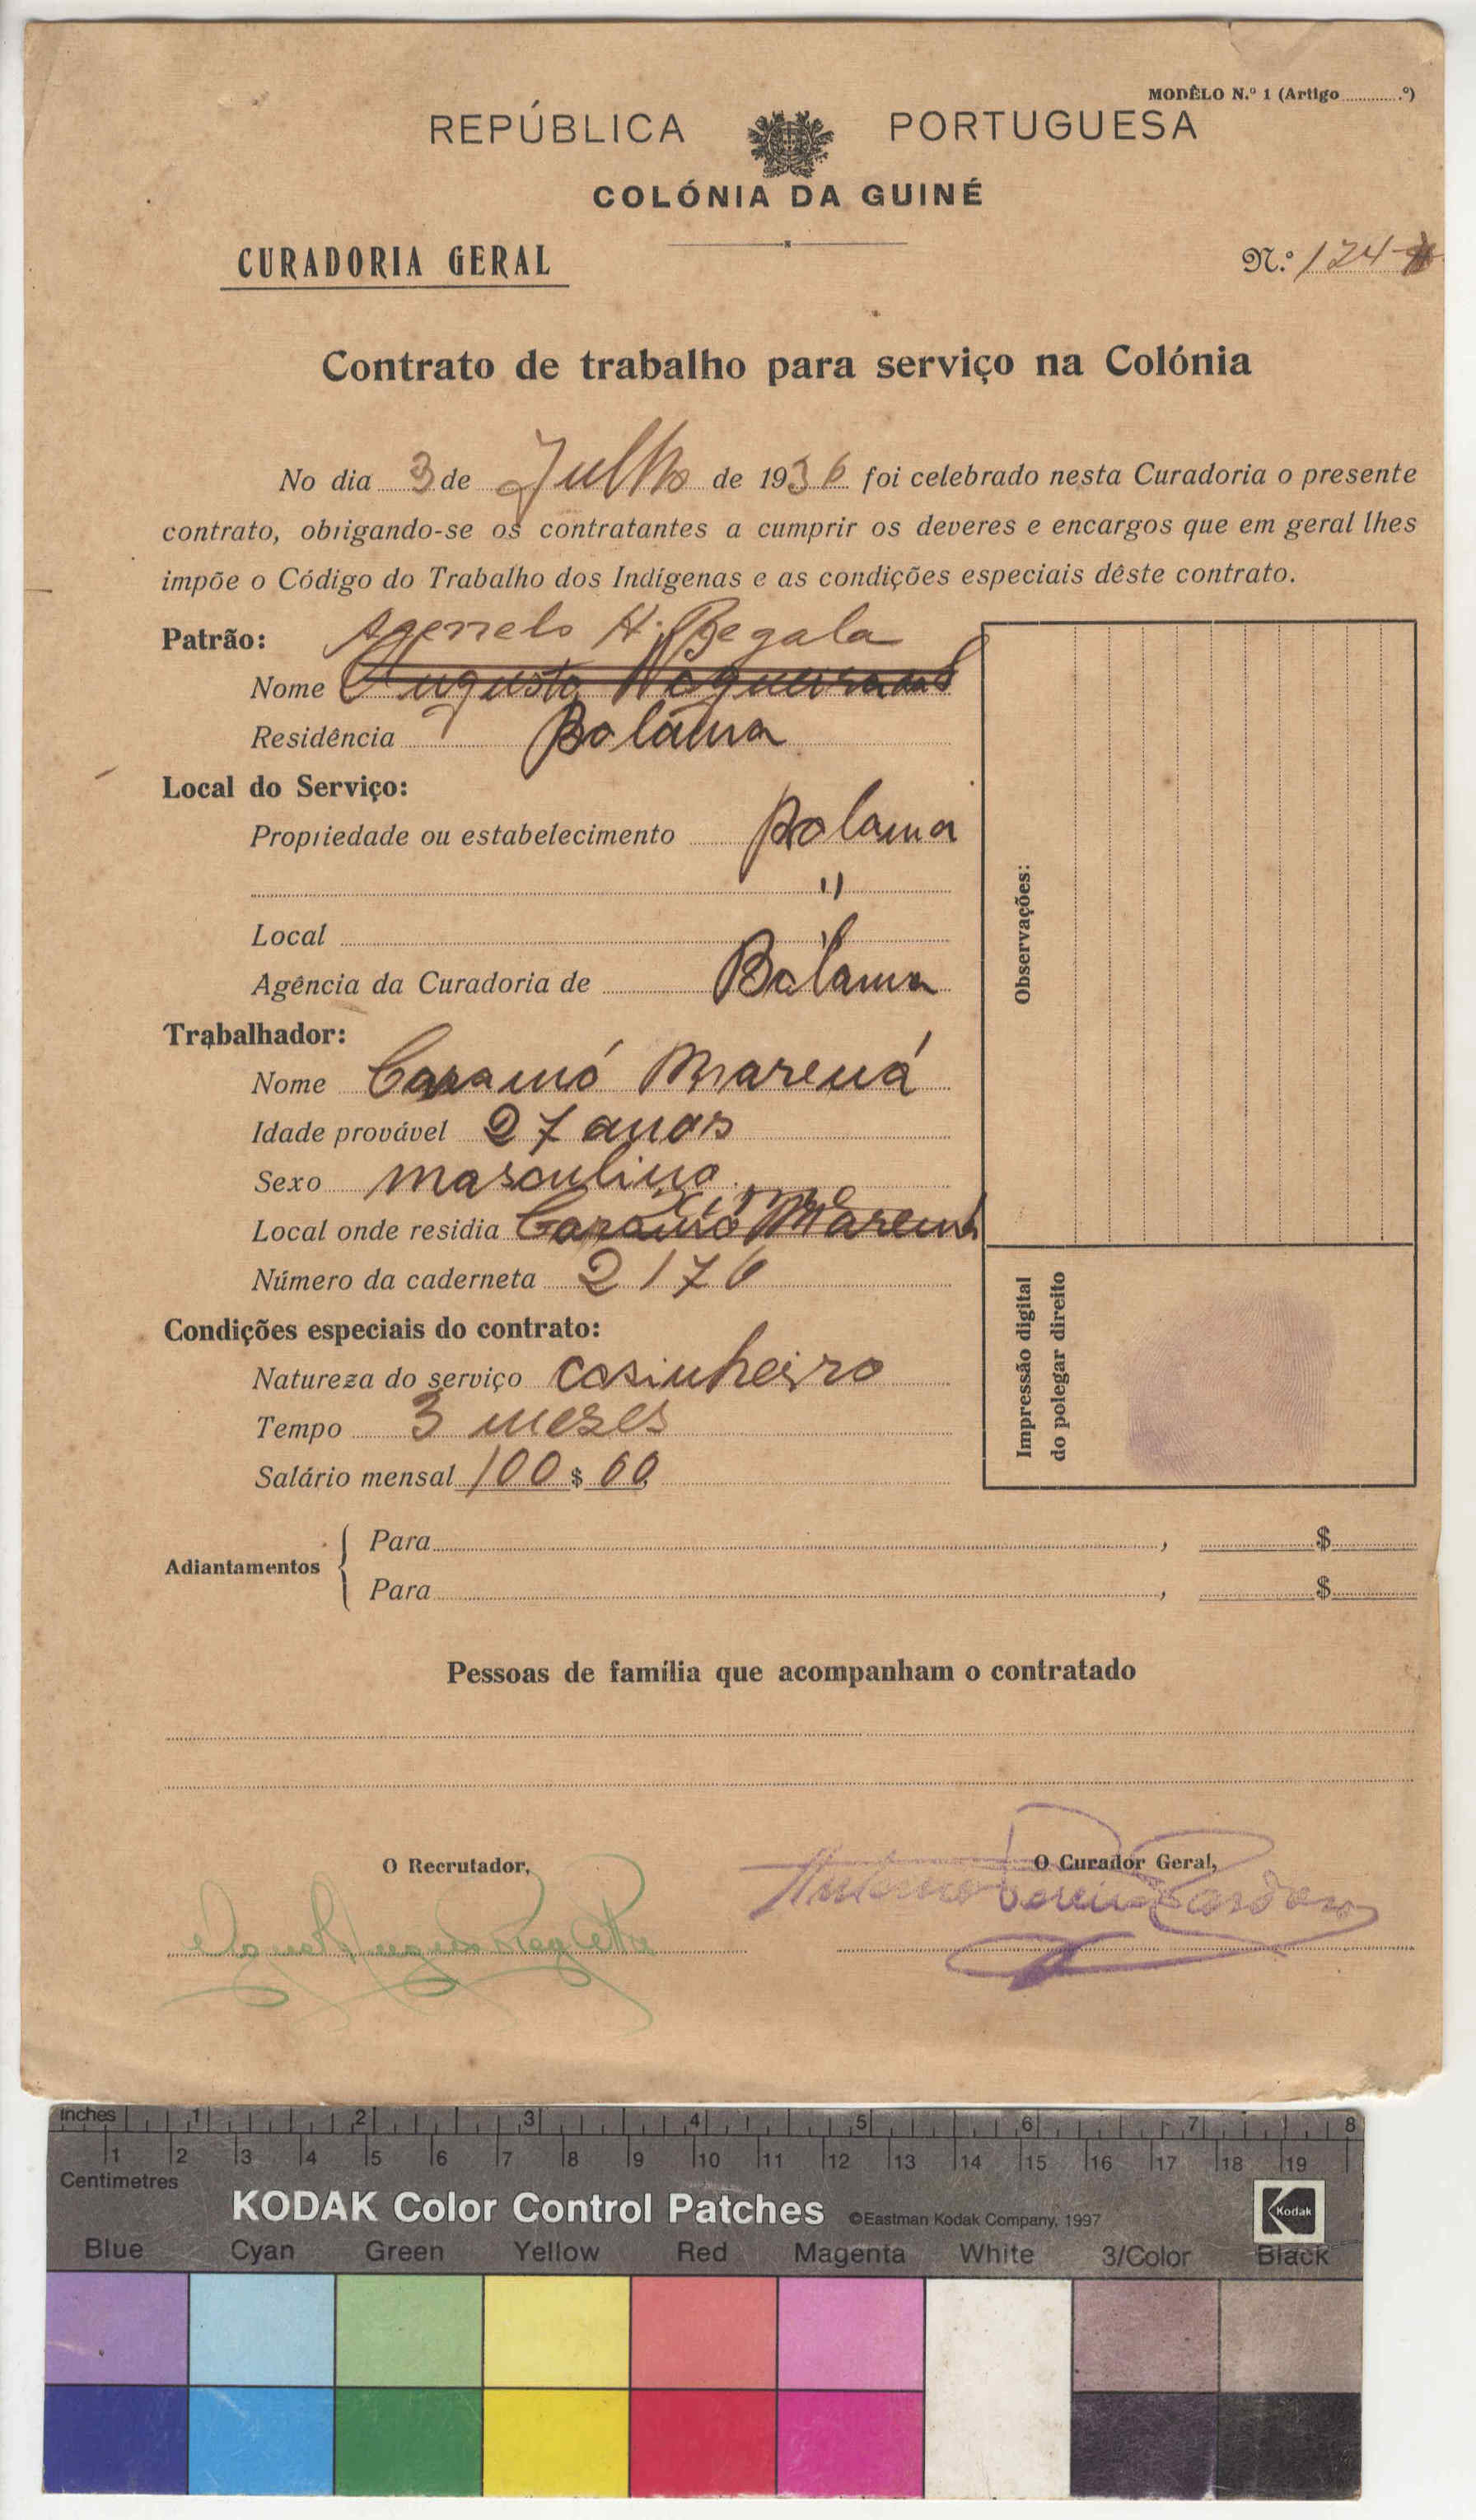 MODÊLO N.º 1 (Artigo ............º)
REPÚBLICA PORTUGUESA
COLÓNIA DA GUINÉ
CURADORIA GERAL
N.º 124
Contrato de trabalho para serviço na Colónia
No dia 3 de Julho de 1936 foi celebrado nesta Curadoria o presente
contrato, obrigando-se os contratantes a cumprir os deveres e encargos que em geral lhes
impõe o Código do Trabalho dos Indígenas e as condições especiais dêste contrato.
Patrão: Agerrelo H. Regala
Nome Augusto Nogueira
Residência Bolama
Local do Serviço:
Propriedade ou estabelecimento Bolama
"
Local "
Agência da Curadoria de Bolama
Trabalhador:
Nome Caramó Marená
Idade provável 27 anos
Sexo masculino
Local onde residia Caramó Marená
Número da caderneta 2176
Condições especiais do contrato:
Natureza do serviço cosinheiro
Tempo 3 mezes
Salário mensal 100$00
Observações:
Impressão digital
do polegar direito
Adiantamentos
Para , $
Para , $
Pessoas de família que acompanham o contratado
O Recrutador,
O Curador Geral,
Antonio Pereira Cardoso
inches 1 2 3 4 5 6 7 8
1 2 3 4 5 6 7 8 9 10 11 12 13 14 15 16 17 18 19
Centimetres
KODAK Color Control Patches ©Eastman Kodak Company, 1997 Kodak
Blue Cyan Green Yellow Red Magenta White 3/Color Black